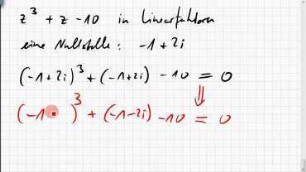 z³ + z - 10 in Linearfaktoren
eine Nullstelle: -1+2i
(-1+2i)³ + (-1+2i) - 10 = 0
⇓
(-1 )³ + (-1-2i) - 10 = 0